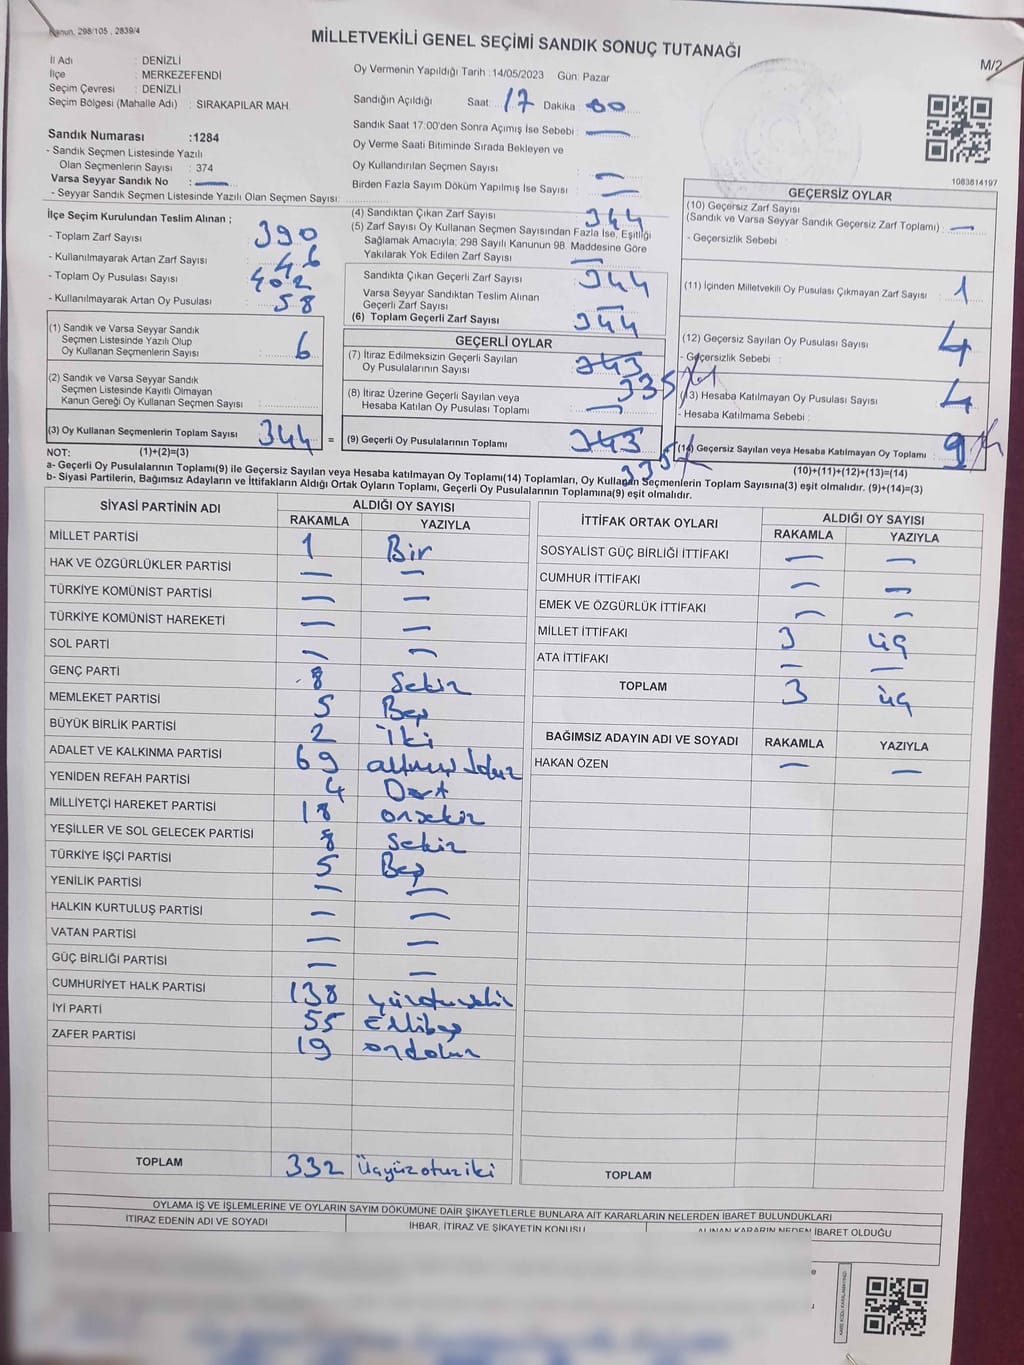 Kanun, 298/105 , 2839/4
MİLLETVEKİLİ GENEL SEÇİMİ SANDIK SONUÇ TUTANAĞI
M/2
İl Adı : DENİZLİ
İlçe : MERKEZEFENDİ
Seçim Çevresi : DENİZLİ
Seçim Bölgesi (Mahalle Adı) : SIRAKAPILAR MAH.
Sandık Numarası :1284
- Sandık Seçmen Listesinde Yazılı
Olan Seçmenlerin Sayısı : 374
Varsa Seyyar Sandık No : —
- Seyyar Sandık Seçmen Listesinde Yazılı Olan Seçmen Sayısı:
Oy Vermenin Yapıldığı Tarih :14/05/2023 Gün: Pazar
Sandığın Açıldığı Saat: 17 Dakika : 00
Sandık Saat 17:00'den Sonra Açımış İse Sebebi : —
Oy Verme Saati Bitiminde Sırada Bekleyen ve
Oy Kullandırılan Seçmen Sayısı : —
Birden Fazla Sayım Döküm Yapılmış İse Sayısı : —
1083614197
İlçe Seçim Kurulundan Teslim Alınan ;
- Toplam Zarf Sayısı : 390
- Kullanılmayarak Artan Zarf Sayısı : 46
- Toplam Oy Pusulası Sayısı : 402
- Kullanılmayarak Artan Oy Pusulası : 58
(1) Sandık ve Varsa Seyyar Sandık
Seçmen Listesinde Yazılı Olup
Oy Kullanan Seçmenlerin Sayısı : 6
(2) Sandık ve Varsa Seyyar Sandık
Seçmen Listesinde Kayıtlı Olmayan
Kanun Gereği Oy Kullanan Seçmen Sayısı :
(3) Oy Kullanan Seçmenlerin Toplam Sayısı : 344 =
(4) Sandıktan Çıkan Zarf Sayısı : 344
(5) Zarf Sayısı Oy Kullanan Seçmen Sayısından Fazla İse, Eşitliği
Sağlamak Amacıyla; 298 Sayılı Kanunun 98. Maddesine Göre
Yakılarak Yok Edilen Zarf Sayısı : —
Sandıkta Çıkan Geçerli Zarf Sayısı : 344
Varsa Seyyar Sandıktan Teslim Alınan
Geçerli Zarf Sayısı : —
(6) Toplam Geçerli Zarf Sayısı : 344
GEÇERLİ OYLAR
(7) İtiraz Edilmeksizin Geçerli Sayılan : 343
Oy Pusulalarının Sayısı 335
(8) İtiraz Üzerine Geçerli Sayılan veya
Hesaba Katılan Oy Pusulası Toplamı : —
(9) Geçerli Oy Pusulalarının Toplamı : 343 +
335
GEÇERSİZ OYLAR
(10) Geçersiz Zarf Sayısı
(Sandık ve Varsa Seyyar Sandık Geçersiz Zarf Toplamı) : —
- Geçersizlik Sebebi :
(11) İçinden Milletvekili Oy Pusulası Çıkmayan Zarf Sayısı : 1
(12) Geçersiz Sayılan Oy Pusulası Sayısı : 4
- Geçersizlik Sebebi :
(13) Hesaba Katılmayan Oy Pusulası Sayısı : 4
- Hesaba Katılmama Sebebi :
(14) Geçersiz Sayılan veya Hesaba Katılmayan Oy Toplamı : 9
NOT: (1)+(2)=(3)
(10)+(11)+(12)+(13)=(14)
a- Geçerli Oy Pusulalarının Toplamı(9) ile Geçersiz Sayılan veya Hesaba katılmayan Oy Toplamı(14) Toplamları, Oy Kullanan Seçmenlerin Toplam Sayısına(3) eşit olmalıdır. (9)+(14)=(3)
b- Siyasi Partilerin, Bağımsız Adayların ve İttifakların Aldığı Ortak Oyların Toplamı, Geçerli Oy Pusulalarının Toplamına(9) eşit olmalıdır.
SİYASİ PARTİNİN ADI ALDIĞI OY SAYISI
RAKAMLA YAZIYLA
MİLLET PARTİSİ 1 Bir
HAK VE ÖZGÜRLÜKLER PARTİSİ — —
TÜRKİYE KOMÜNİST PARTİSİ — —
TÜRKİYE KOMÜNİST HAREKETİ — —
SOL PARTİ — —
GENÇ PARTİ 8 Sekiz
MEMLEKET PARTİSİ 5 Beş
BÜYÜK BİRLİK PARTİSİ 2 İki
ADALET VE KALKINMA PARTİSİ 69 altmışdokuz
YENİDEN REFAH PARTİSİ 4 Dört
MİLLİYETÇİ HAREKET PARTİSİ 18 onsekiz
YEŞİLLER VE SOL GELECEK PARTİSİ 8 Sekiz
TÜRKİYE İŞÇİ PARTİSİ 5 Beş
YENİLİK PARTİSİ — —
HALKIN KURTULUŞ PARTİSİ — —
VATAN PARTİSİ — —
GÜÇ BİRLİĞİ PARTİSİ — —
CUMHURİYET HALK PARTİSİ 138 yüzotuzsekiz
İYİ PARTİ 55 Ellibeş
ZAFER PARTİSİ 19 ondokuz
TOPLAM 332 Üçyüzotuziki
İTTİFAK ORTAK OYLARI ALDIĞI OY SAYISI
RAKAMLA YAZIYLA
SOSYALİST GÜÇ BİRLİĞİ İTTİFAKI — —
CUMHUR İTTİFAKI — —
EMEK VE ÖZGÜRLÜK İTTİFAKI — —
MİLLET İTTİFAKI 3 üç
ATA İTTİFAKI — —
TOPLAM 3 üç
BAĞIMSIZ ADAYIN ADI VE SOYADI RAKAMLA YAZIYLA
HAKAN ÖZEN — —
TOPLAM
OYLAMA İŞ VE İŞLEMLERİNE VE OYLARIN SAYIM DÖKÜMÜNE DAİR ŞİKAYETLERLE BUNLARA AİT KARARLARIN NELERDEN İBARET BULUNDUKLARI
İTİRAZ EDENİN ADI VE SOYADI İHBAR, İTİRAZ VE ŞİKAYETİN KONUSU ALINAN KARARIN NEDEN İBARET OLDUĞU